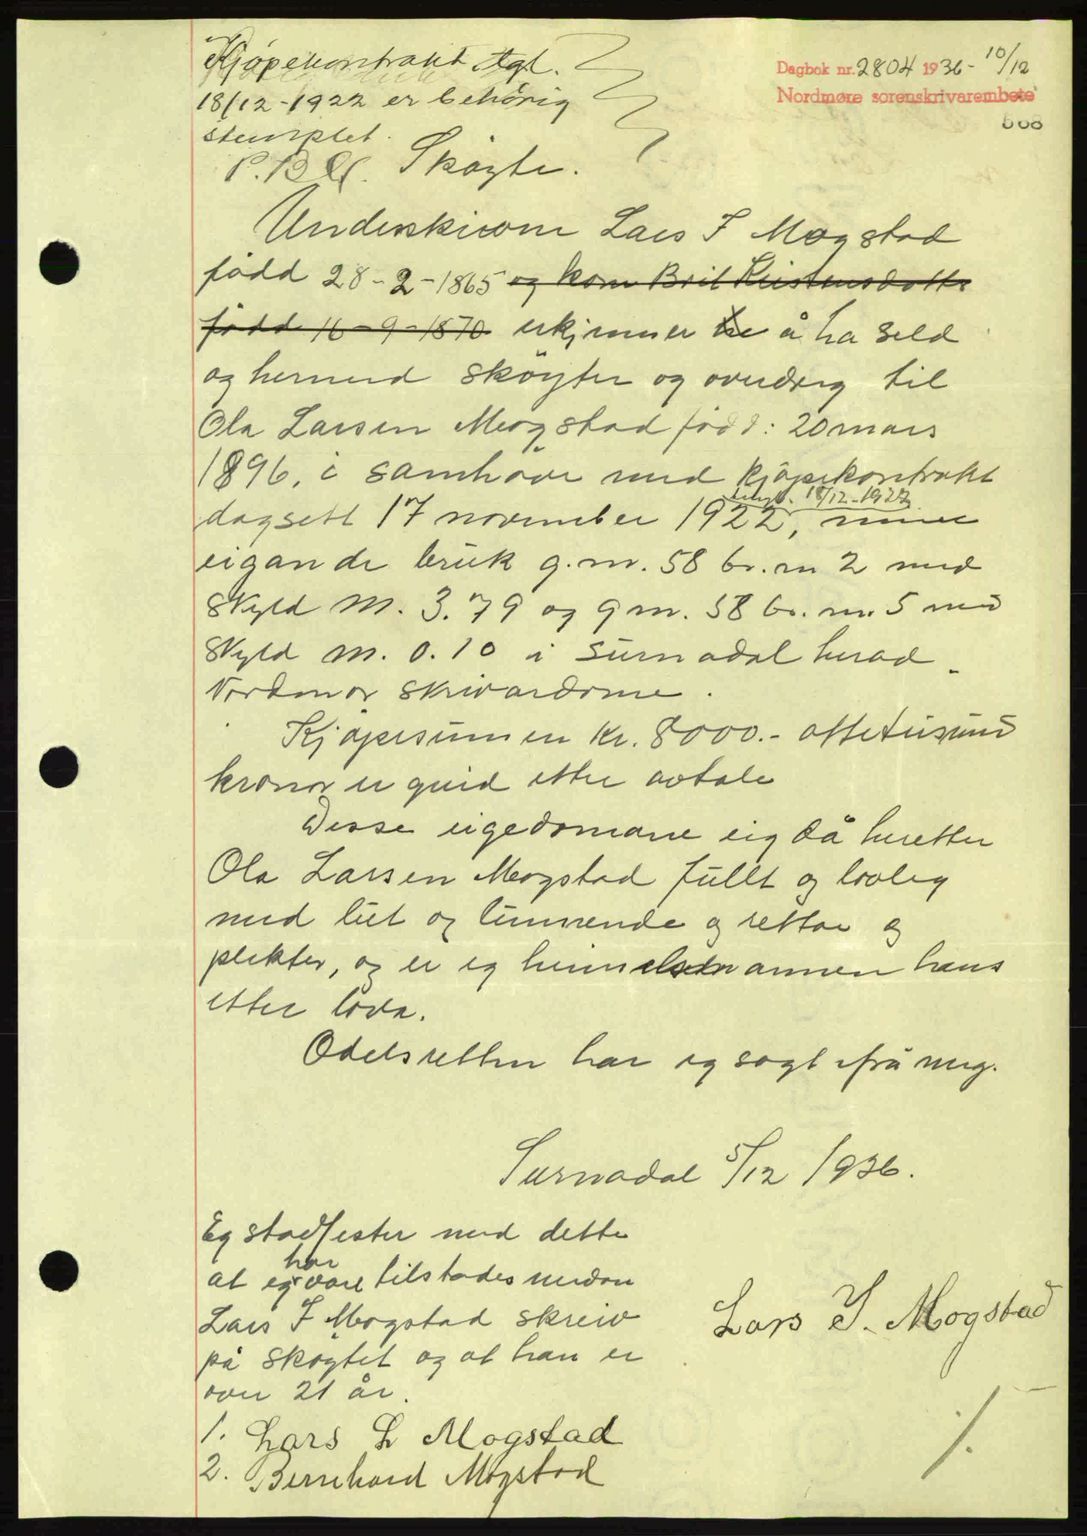 Kjøpekontrakt tgl.
18/12-1922 er behörig
stemplet.
Dagbok nr. 2804 1936 - 10/12
Nordmøre sorenskrivarembete
568
Skøyte.
Underskrivne Lars I Mogstad
född 28-2-1865 og kona Brit Kristensdotter
född 16-9-1870 erkjenner å ha seld
og hermed skøyter og overdreg til
Ola Larsen Mogstad född: 20 mars
1896, i samhøve med kjøpekontrakt
tingl. 18/12-1922
dagsett 17 november 1922, mine
eigande bruk g.nr. 58 br.nr 2 med
skyld m. 3.79 og g nr. 58 br. nr. 5 med
skyld m. 0.10 i Surnadal herad
Nordmør skrivardøme.
Kjøpesumen kr. 8000.- åttetusund
kronor er greid etter avtale
Desse eigedomane eig då heretter
Ola Larsen Mogstad fullt og lovleg
med lut og lunnende og rettar og
plikter, og er eg heimelsmannen hans
etter lova.
Odelsretten har eg sagt ifrå meg.
Surnadal 5/12 1936.
Eg stadfester med dette
har
at eg vore tilstades medan
Lars I Mogstad skreiv
på skøytet og at han er
over 21 år.
Lars I. Mogstad
1. Lars L Mogstad
2. Bernhard Mogstad